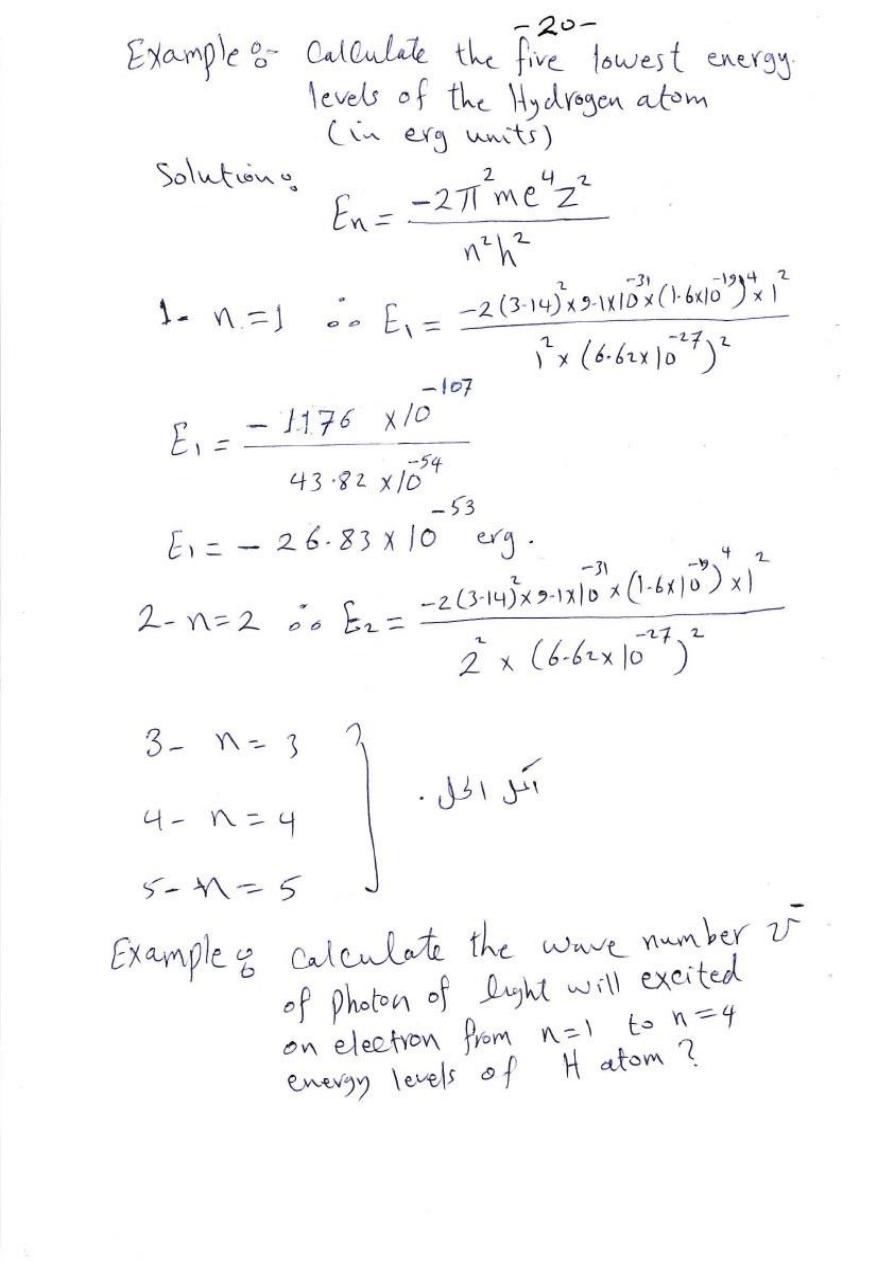 -20-
Example :- Calculate the five lowest energy
levels of the Hydrogen atom
(in erg units)
Solution:
En = -2π²me⁴z² / n²h²
1- n=1 ∴ E₁ = -2(3.14)²×9.1×10⁻³¹×(1.6×10⁻¹⁹)⁴×1² / 1²×(6.62×10⁻²⁷)²
E₁ = -1176 ×10⁻¹⁰⁷ / 43.82 ×10⁻⁵⁴
E₁ = - 26.83 × 10⁻⁵³ erg.
2- n=2 ∴ E₂ = -2(3.14)²×9.1×10⁻³¹×(1.6×10⁻¹⁹)⁴×1² / 2² × (6.62×10⁻²⁷)²
3- n=3
4- n=4
أكمل الحل.
5- n=5
Example: Calculate the wave number ν̄
of photon of light will excited
on electron from n=1 to n=4
energy levels of H atom ?